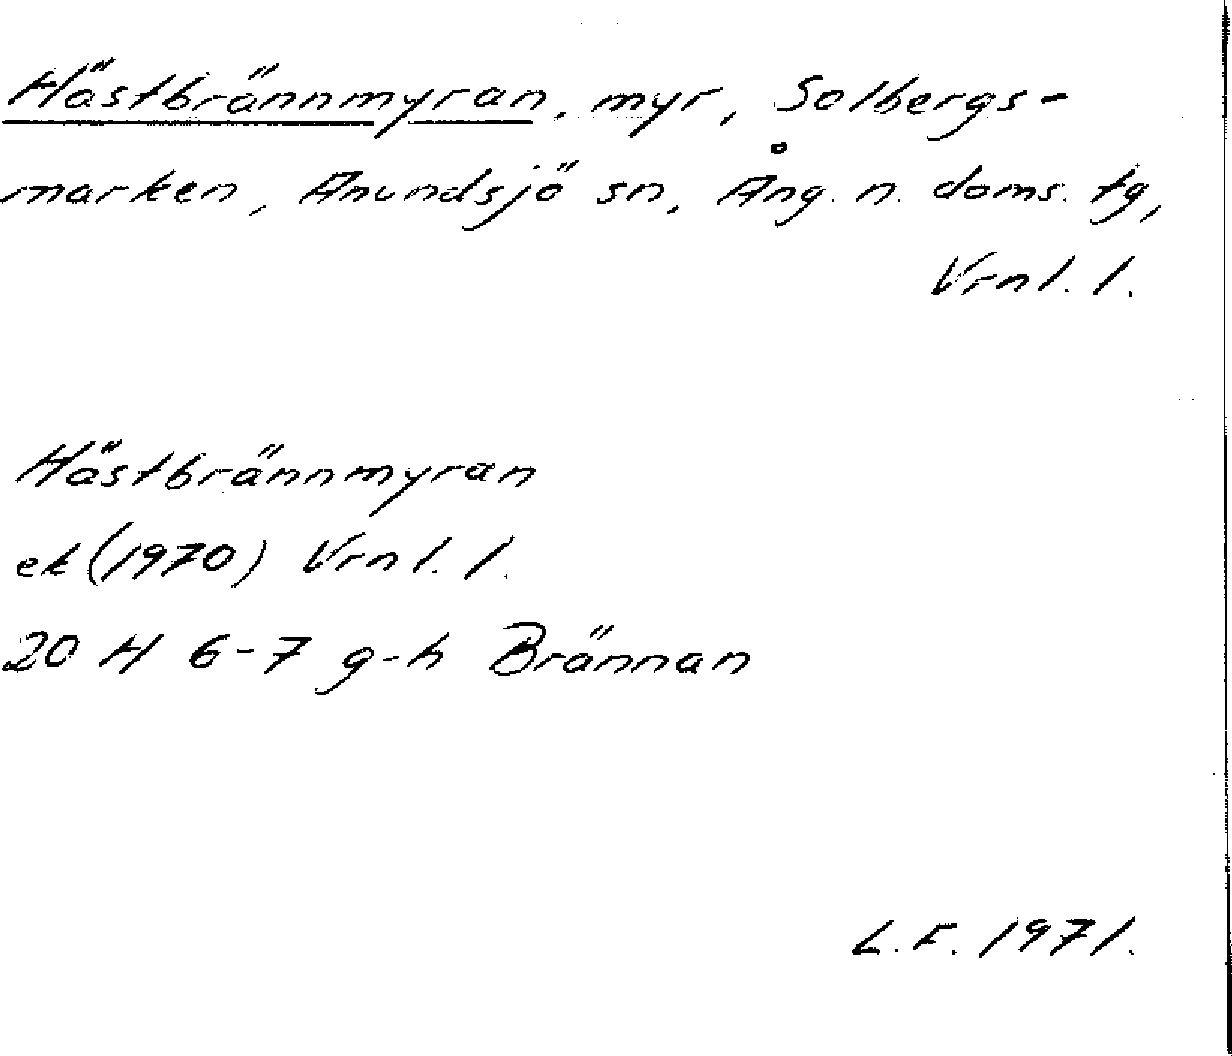 Hästbrännmyran, myr, Solbergs-
marken, Anundsjö sn, Ång. n. doms. tg,
Vrnl. l.
Hästbrännmyran
ek (1970) Vrnl. l.
20 H 6-7 g-h Brännan
L. F. 1971.